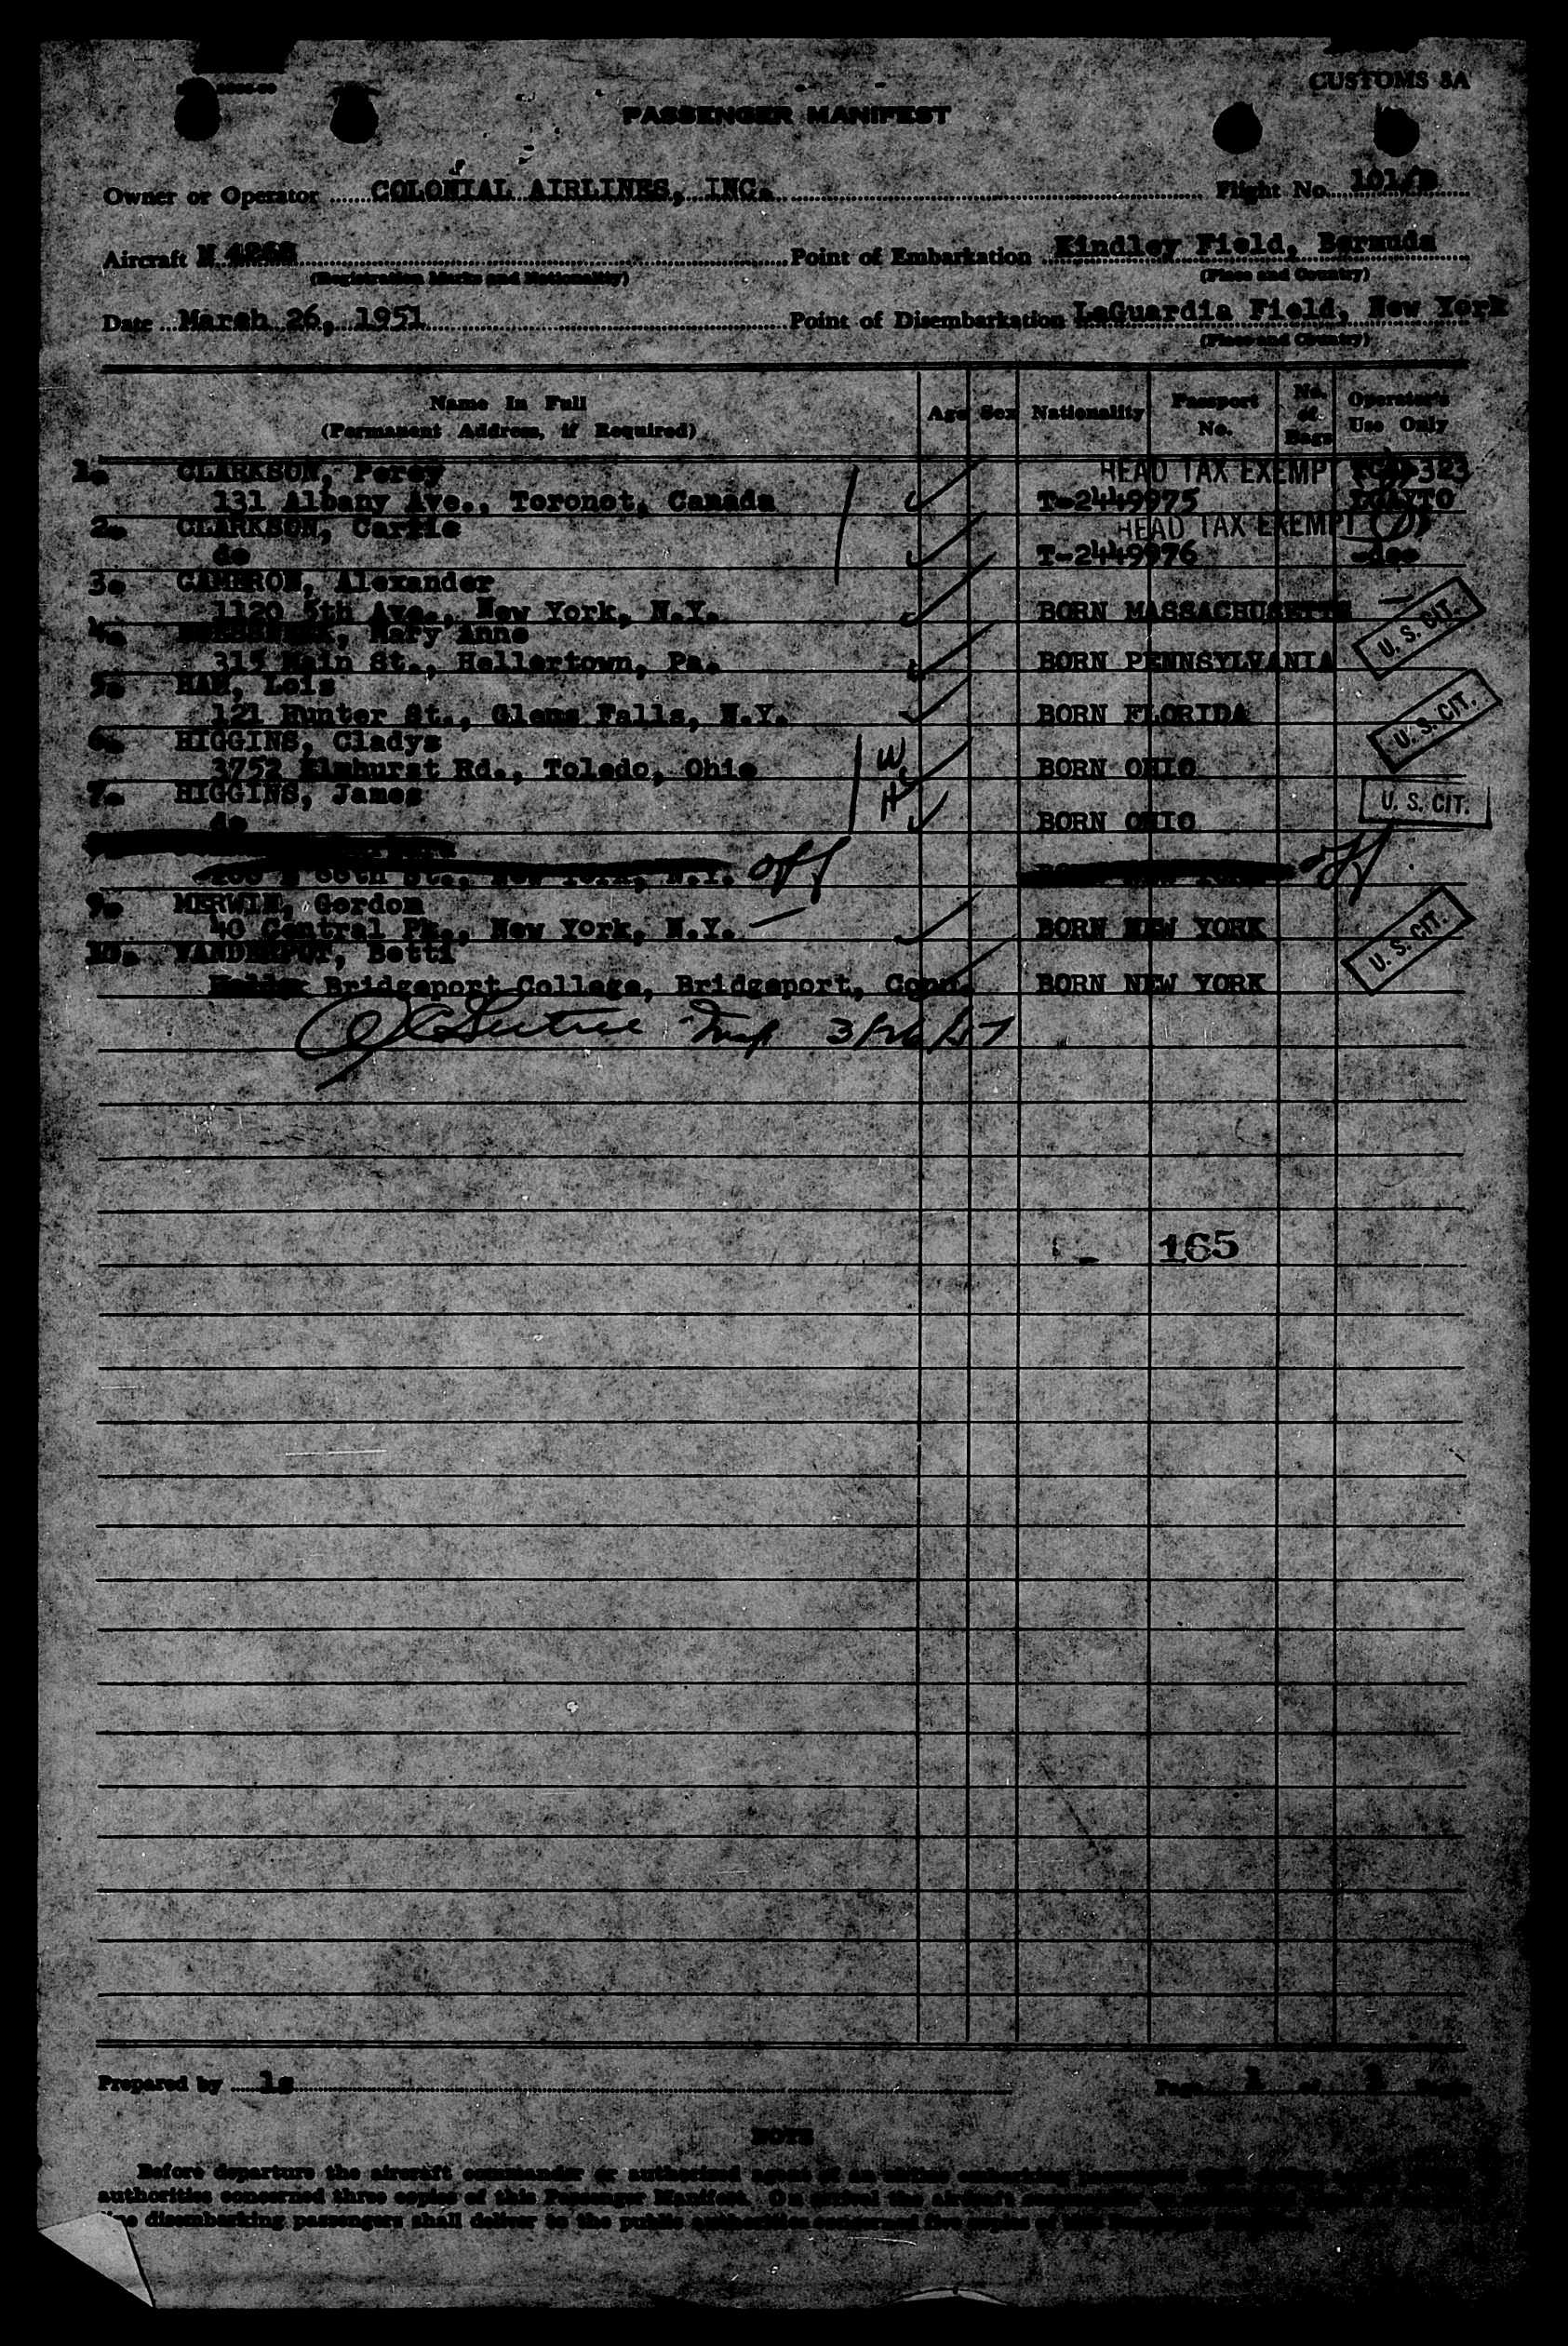 CUSTOMS 8A
PASSENGER MANIFEST
Owner or Operator COLONIAL AIRLINES, INC. Flight No. 101/B
Aircraft N Point of Embarkation Kindley Field, Bermuda
(Registration Marks and Nationality) (Place and Country)
Date March 26, 1951 Point of Disembarkation LaGuardia Field, New York
(Place and Country)
Name In Full Age Sex Nationality Passport No. No. of Bags Operator's Use Only
(Permanent Address, if Required)
1. CLARKSON, Percy HEAD TAX EXEMPT 323
131 Albany Ave., Toronot, Canada T-2449975
2. CLARKSON, Carrie HEAD TAX EXEMPT
do T-2449976 -do-
3. CAMERON, Alexander
1120 5th Ave., New York, N.Y. BORN MASSACHUSETTS U. S. CIT.
4. Mary Anne
315 Main St., Hellertown, Pa. BORN PENNSYLVANIA
5. HAM, Lois
121 Hunter St., Glens Falls, N.Y. BORN FLORIDA U. S. CIT.
6. HIGGINS, Gladys W
3752 Elmhurst Rd., Toledo, Ohio BORN OHIO
7. HIGGINS, James H U. S. CIT.
do BORN OHIO
St., New York, N.Y. off off
9. MERWIN, Gordon
40 Central Pk., New York, N.Y. BORN NEW YORK U. S. CIT.
10. VANDERPUT, Betti
Bridgeport College, Bridgeport, Conn. BORN NEW YORK
165
Prepared by ls Page 1 of Pages
NOTE
Before departure the aircraft commander or authorized agent of an
authorities concerned three copies of this Passenger Manifest. On arrival the aircraft
line disembarking passengers shall deliver to the public authorities concerned five copies of this Passenger Manifest.